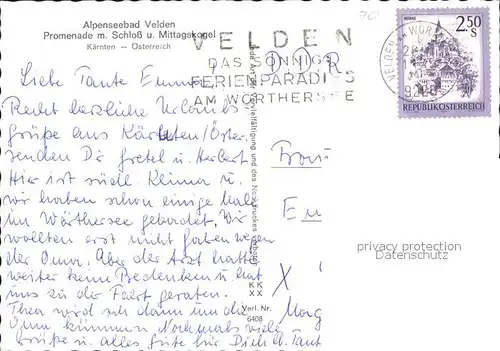 Alpenseebad Velden
Promenade m. Schloß u. Mittagskogel
Kärnten - Österreich
VELDEN
DAS SONNIGE
FERIENPARADIES
AM WÖRTHERSEE
VELDEN AM WÖRT
REPUBLIK ÖSTERREICH
2.50
S
DDR
Liebe Tante Emma
Recht herzliche Urlaubs-
grüße aus Kärnten/Öster.
senden Dir Gretel u. Herbert
Hier ist südl. Klima u.
wir haben schon einige male
im Wörthersee gebadet. Wir
wollten erst nicht fahren wegen
der Oma. Aber der Arzt hatte
weiter keine Bedenken u. hat
uns zu der Fahrt geraten.
Thea wird sich dann um die
Oma kümmern. Nochmals viele
Grüße u. alles Gute für Dich lb. Tante
Frau
Em
X
Mag
KK
XX
Verl. Nr.
6408
privacy protection
Datenschutz